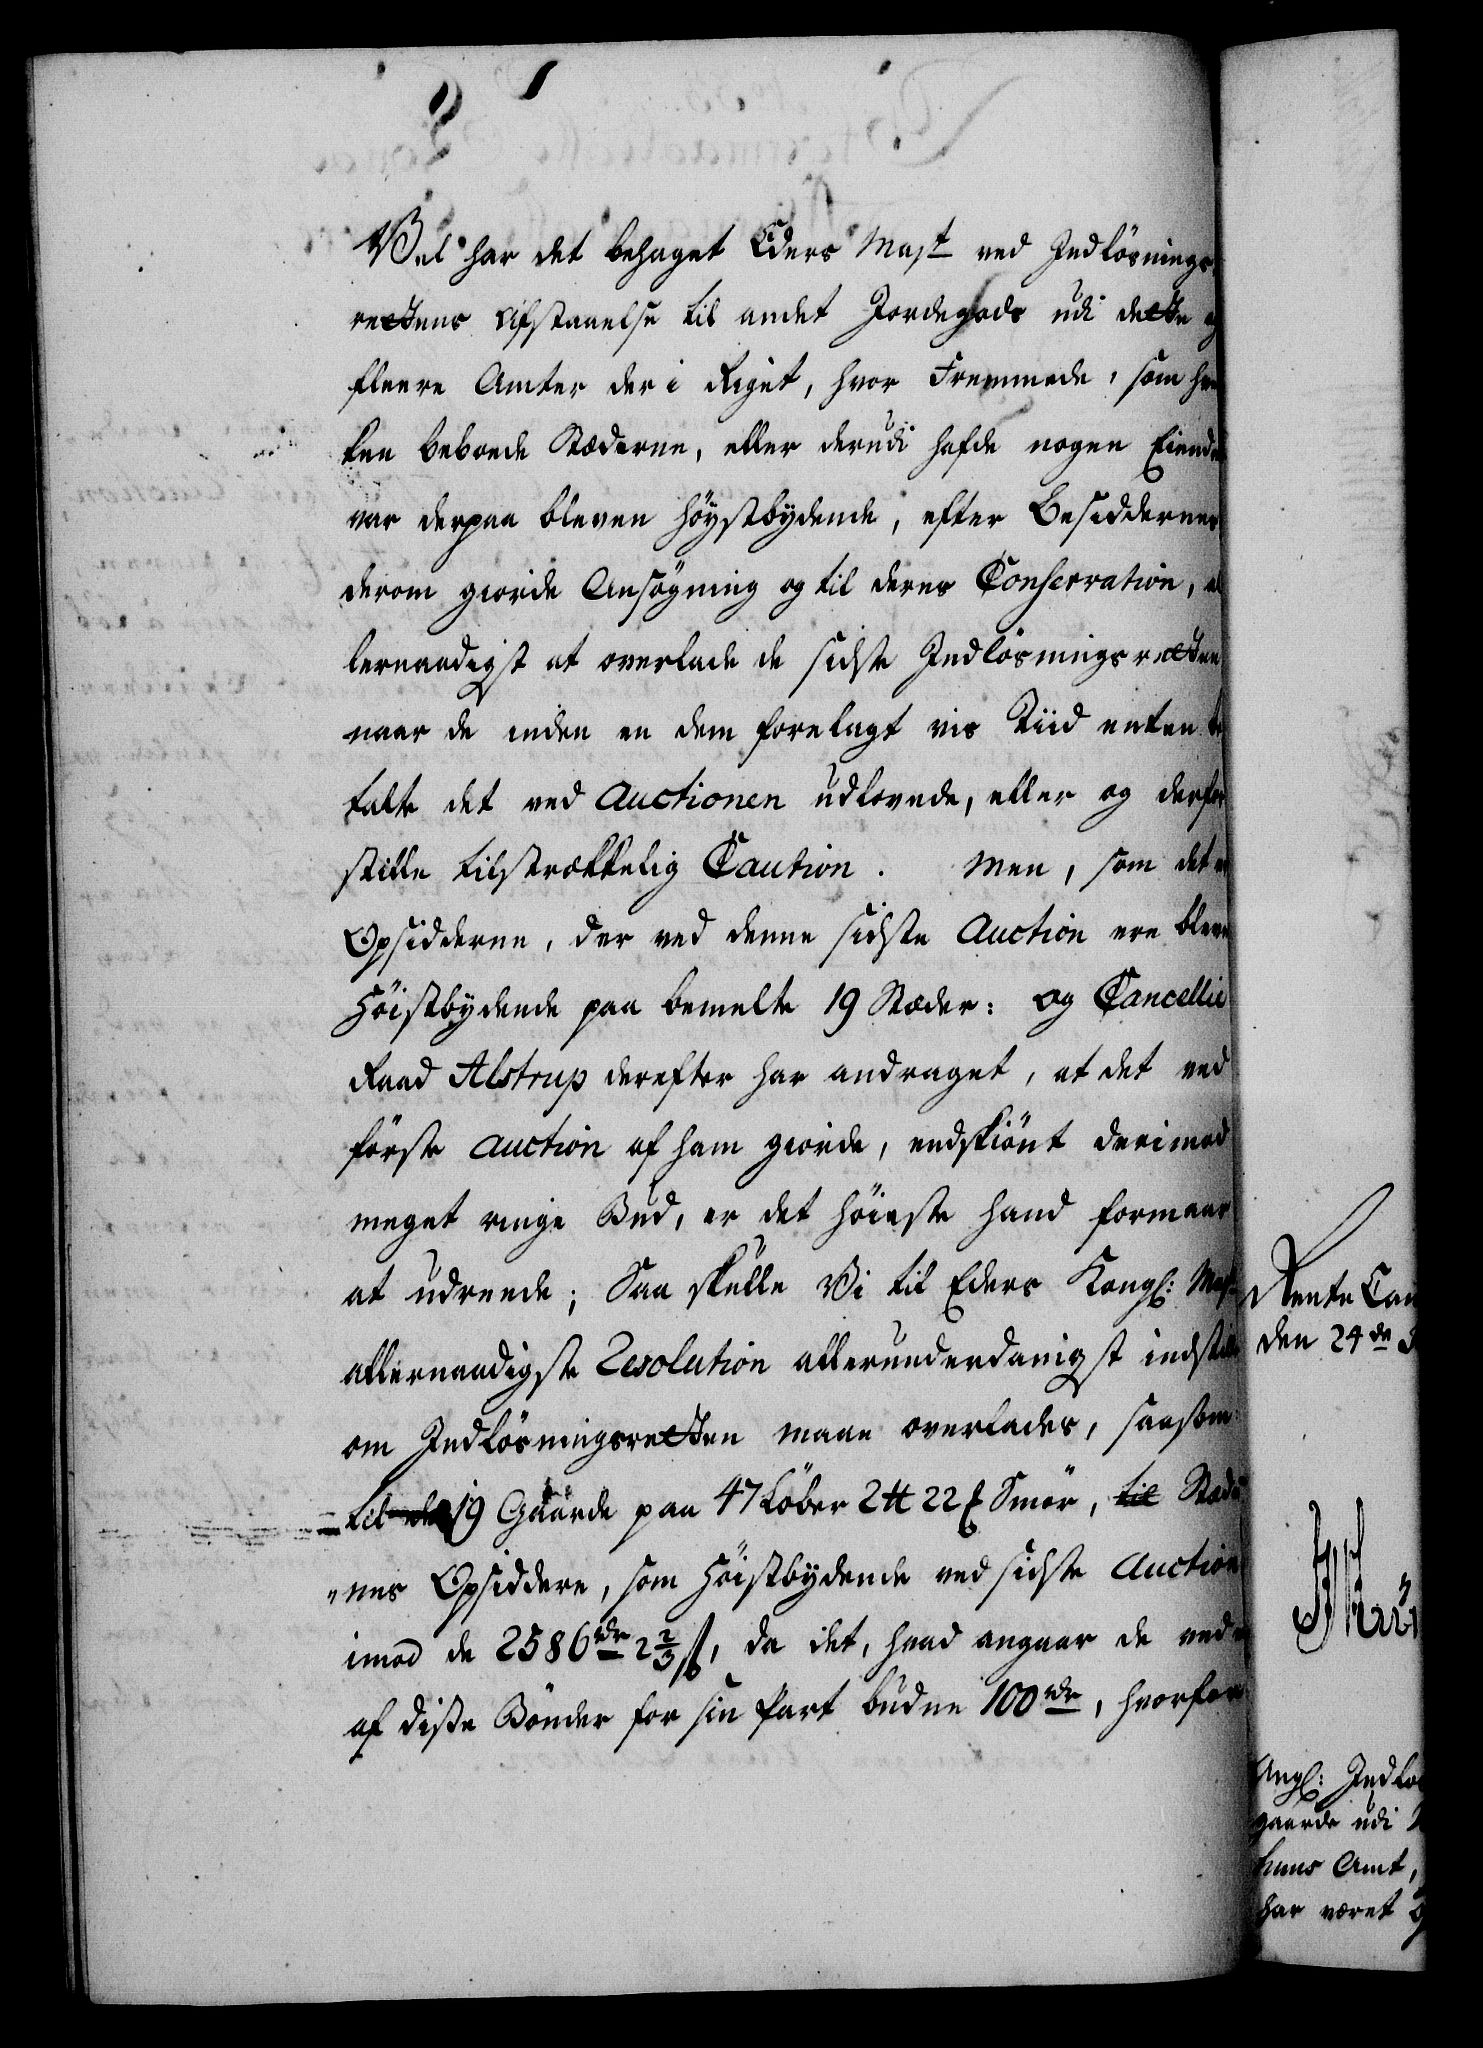 Vel har det behaget Eders Mast ved Indlösnings
rettens Afstaaelse til andet Jordegods udi dette
fleere Amter der i Riget, hvor Fremmede, som
ken beboede Stæderne, eller derudi hafde nogen Eiendom
var derpaa bleven höystbydende, efter Besiddernes
derom giorde Ansögning og til deres Conservation, al
lernaadigst at overlade de sidste Indlösningsretten
naar de inden en dem forelagt vis Tiid enten be
talte det ved Auctionen udlovede, eller og derfor
stille tilstrækkelig Caution. Men, som det er
Opsidderne, der ved denne sidste Auction ere bleven
Höistbydende paa bemelte 19 Stæder: og Cancellie
Raad Alstrup derefter har andraget, at det ved
förste Auction af ham giorde, endskiönt derimod
meget ringe Bud, er det höieste hand formaar
at udreede; Saa skulle Vi til Eders Kongl: Mast
allernaadigste Resolution allerunderdanigst indstille
om Indlösningsretten maae overlades, saasom:
til de 19 Gaarde paa 47 Löber 2 ℔ 22 Smör, til Stæder
"nes Opsiddere, som Höistbydende ved sidste Auction
imod de 2586 rdr 2 2/3 ß, da det, hvad angaar de ved
af disse Bönder for sin Part budne 100 rdr, hvorfor
Rente Cam
den 24de
Angl: Indlös
gaarde udi
huus Amt,
har været